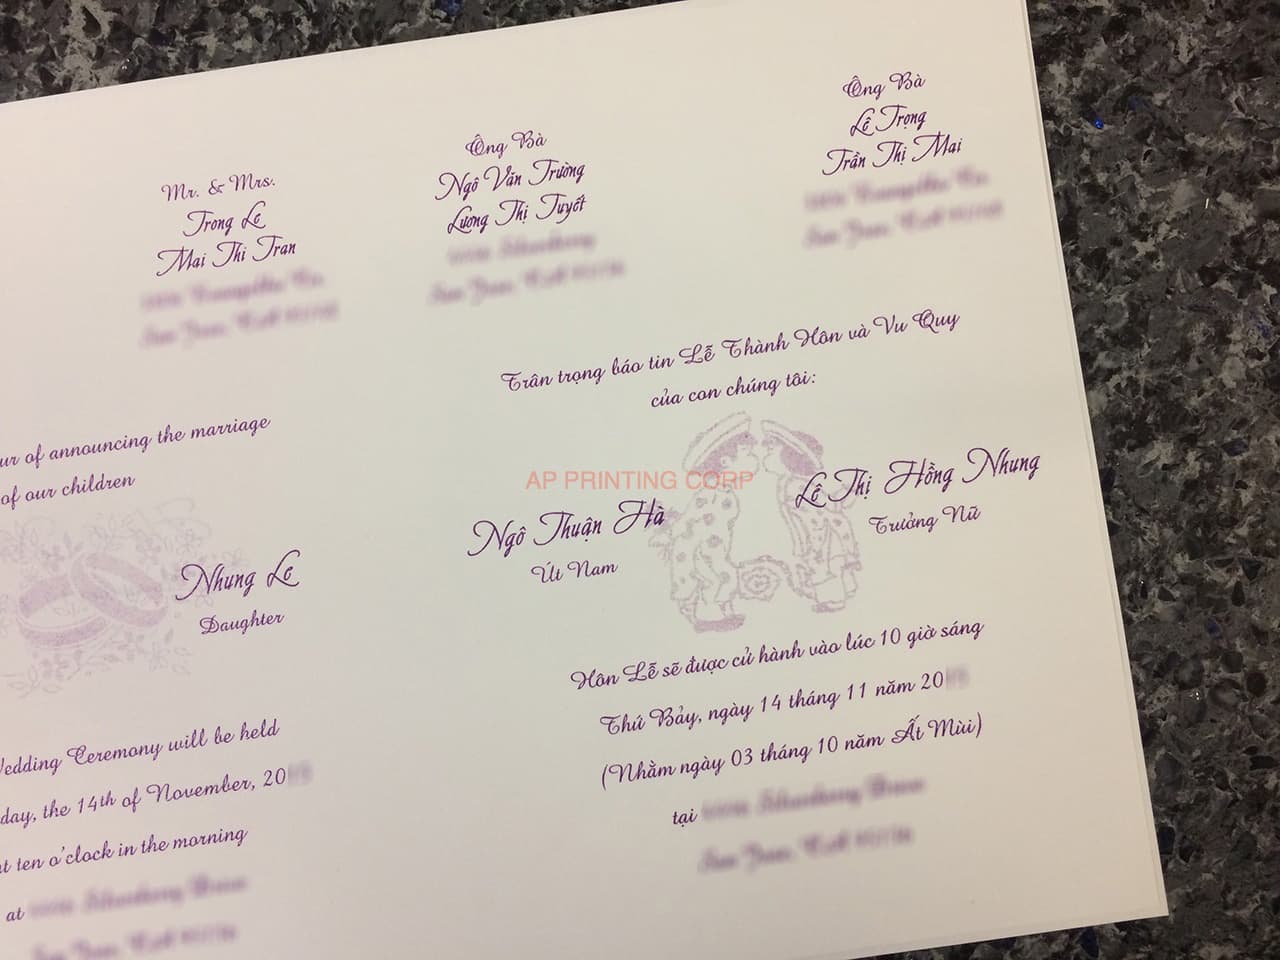 Mr. & Mrs.
Trong Le
Mai Thi Tran
ur of announcing the marriage
of our children
Nhung Le
Daughter
Wedding Ceremony will be held
day, the 14th of November, 20
at ten o'clock in the morning
at
Ông Bà
Ngô Văn Trường
Lương Thị Tuyết
Ông Bà
Lê Trọng
Trần Thị Mai
Trân trọng báo tin Lễ Thành Hôn và Vu Quy
của con chúng tôi:
AP PRINTING CORP
Ngô Thuận Hà
Út Nam
Lê Thị Hồng Nhung
Trưởng Nữ
Hôn Lễ sẽ được cử hành vào lúc 10 giờ sáng
Thứ Bảy, ngày 14 tháng 11 năm 20
(Nhằm ngày 03 tháng 10 năm Ất Mùi)
tại